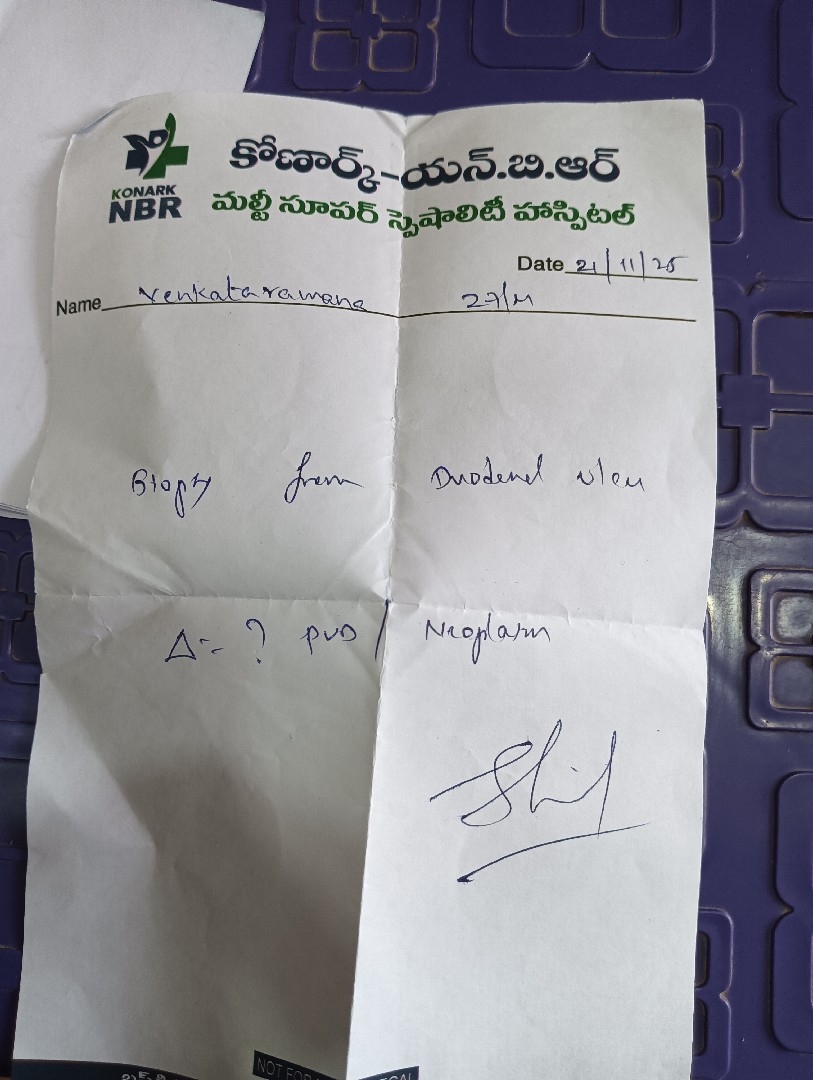 KONARK
NBR
కోణార్క్-యన్.బి.ఆర్
మల్టీ సూపర్ స్పెషాలిటీ హాస్పిటల్
Date 21/11/25
Name Venkataramana 27/M
Biopsy from Duodenal ulcer
Δ:- ? PUD / Neoplasm
NOT FOR